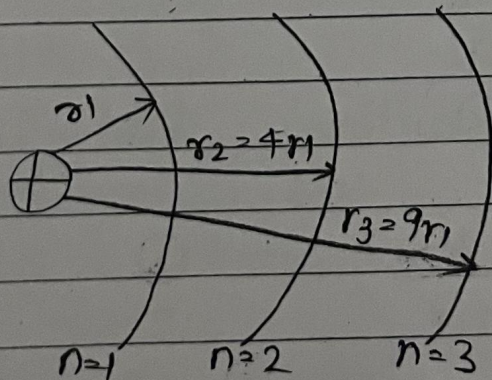 r1
r2 = 4r1
r3 = 9r1
n=1 n=2 n=3